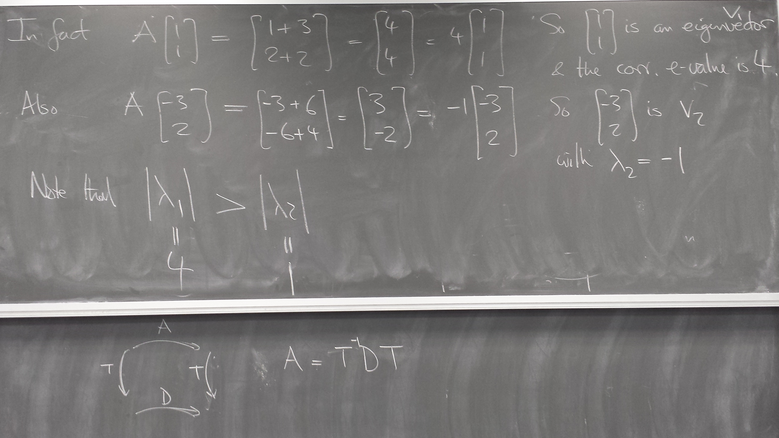 In fact A [1 1] = [1+3 2+2] = [4 4] = 4 [1 1] So [1 1] is an eigenvector V₁
& the corr. e-value is 4.
Also A [-3 2] = [-3+6 -6+4] = [3 -2] = -1 [-3 2] So [-3 2] is V₂
with λ₂ = -1
Note that |λ₁| > |λ₂|
= =
4 1
A
T T A = T⁻¹DT
D